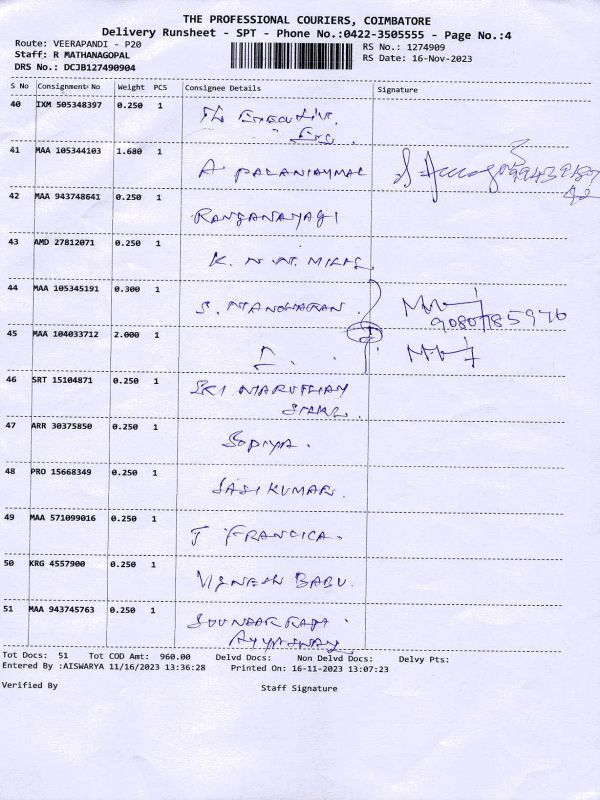 THE PROFESSIONAL COURIERS, COIMBATORE
Delivery Runsheet - SPT - Phone No.:0422-3505555 - Page No.:4
Route: VEERAPANDI - P20
RS No.: 1274909
Staff: R MATHANAGOPAL
RS Date: 16-Nov-2023
DRS No.: DCJB127490904
S No Consignment No Weight PCS Consignee Details Signature
40 IXM 505348397 0.250 1 The Executive.
Eng.
41 MAA 105344103 1.680 1 A PALANIAMMAL
42 MAA 943748641 0.250 1 RANGANAYAGI
43 AMD 27812071 0.250 1 K. N W. MILLS
44 MAA 105345191 0.300 1 S. MANOHARAN.
9080785970
45 MAA 104033712 2.000 1
46 SRT 15104871 0.250 1 SRI MARUTHAY
47 ARR 30375850 0.250 1 SOPIYA.
48 PRO 15668349 0.250 1 SASIKUMAR.
49 MAA 571099016 0.250 1 J FRANCICA.
50 KRG 4557900 0.250 1 VIGNESH BABU.
51 MAA 943745763 0.250 1 SOUNDARRAJA
AYYASWAY
Tot Docs: 51 Tot COD Amt: 960.00 Delvd Docs: Non Delvd Docs: Delvy Pts:
Entered By :AISWARYA 11/16/2023 13:36:28 Printed On: 16-11-2023 13:07:23
Verified By Staff Signature